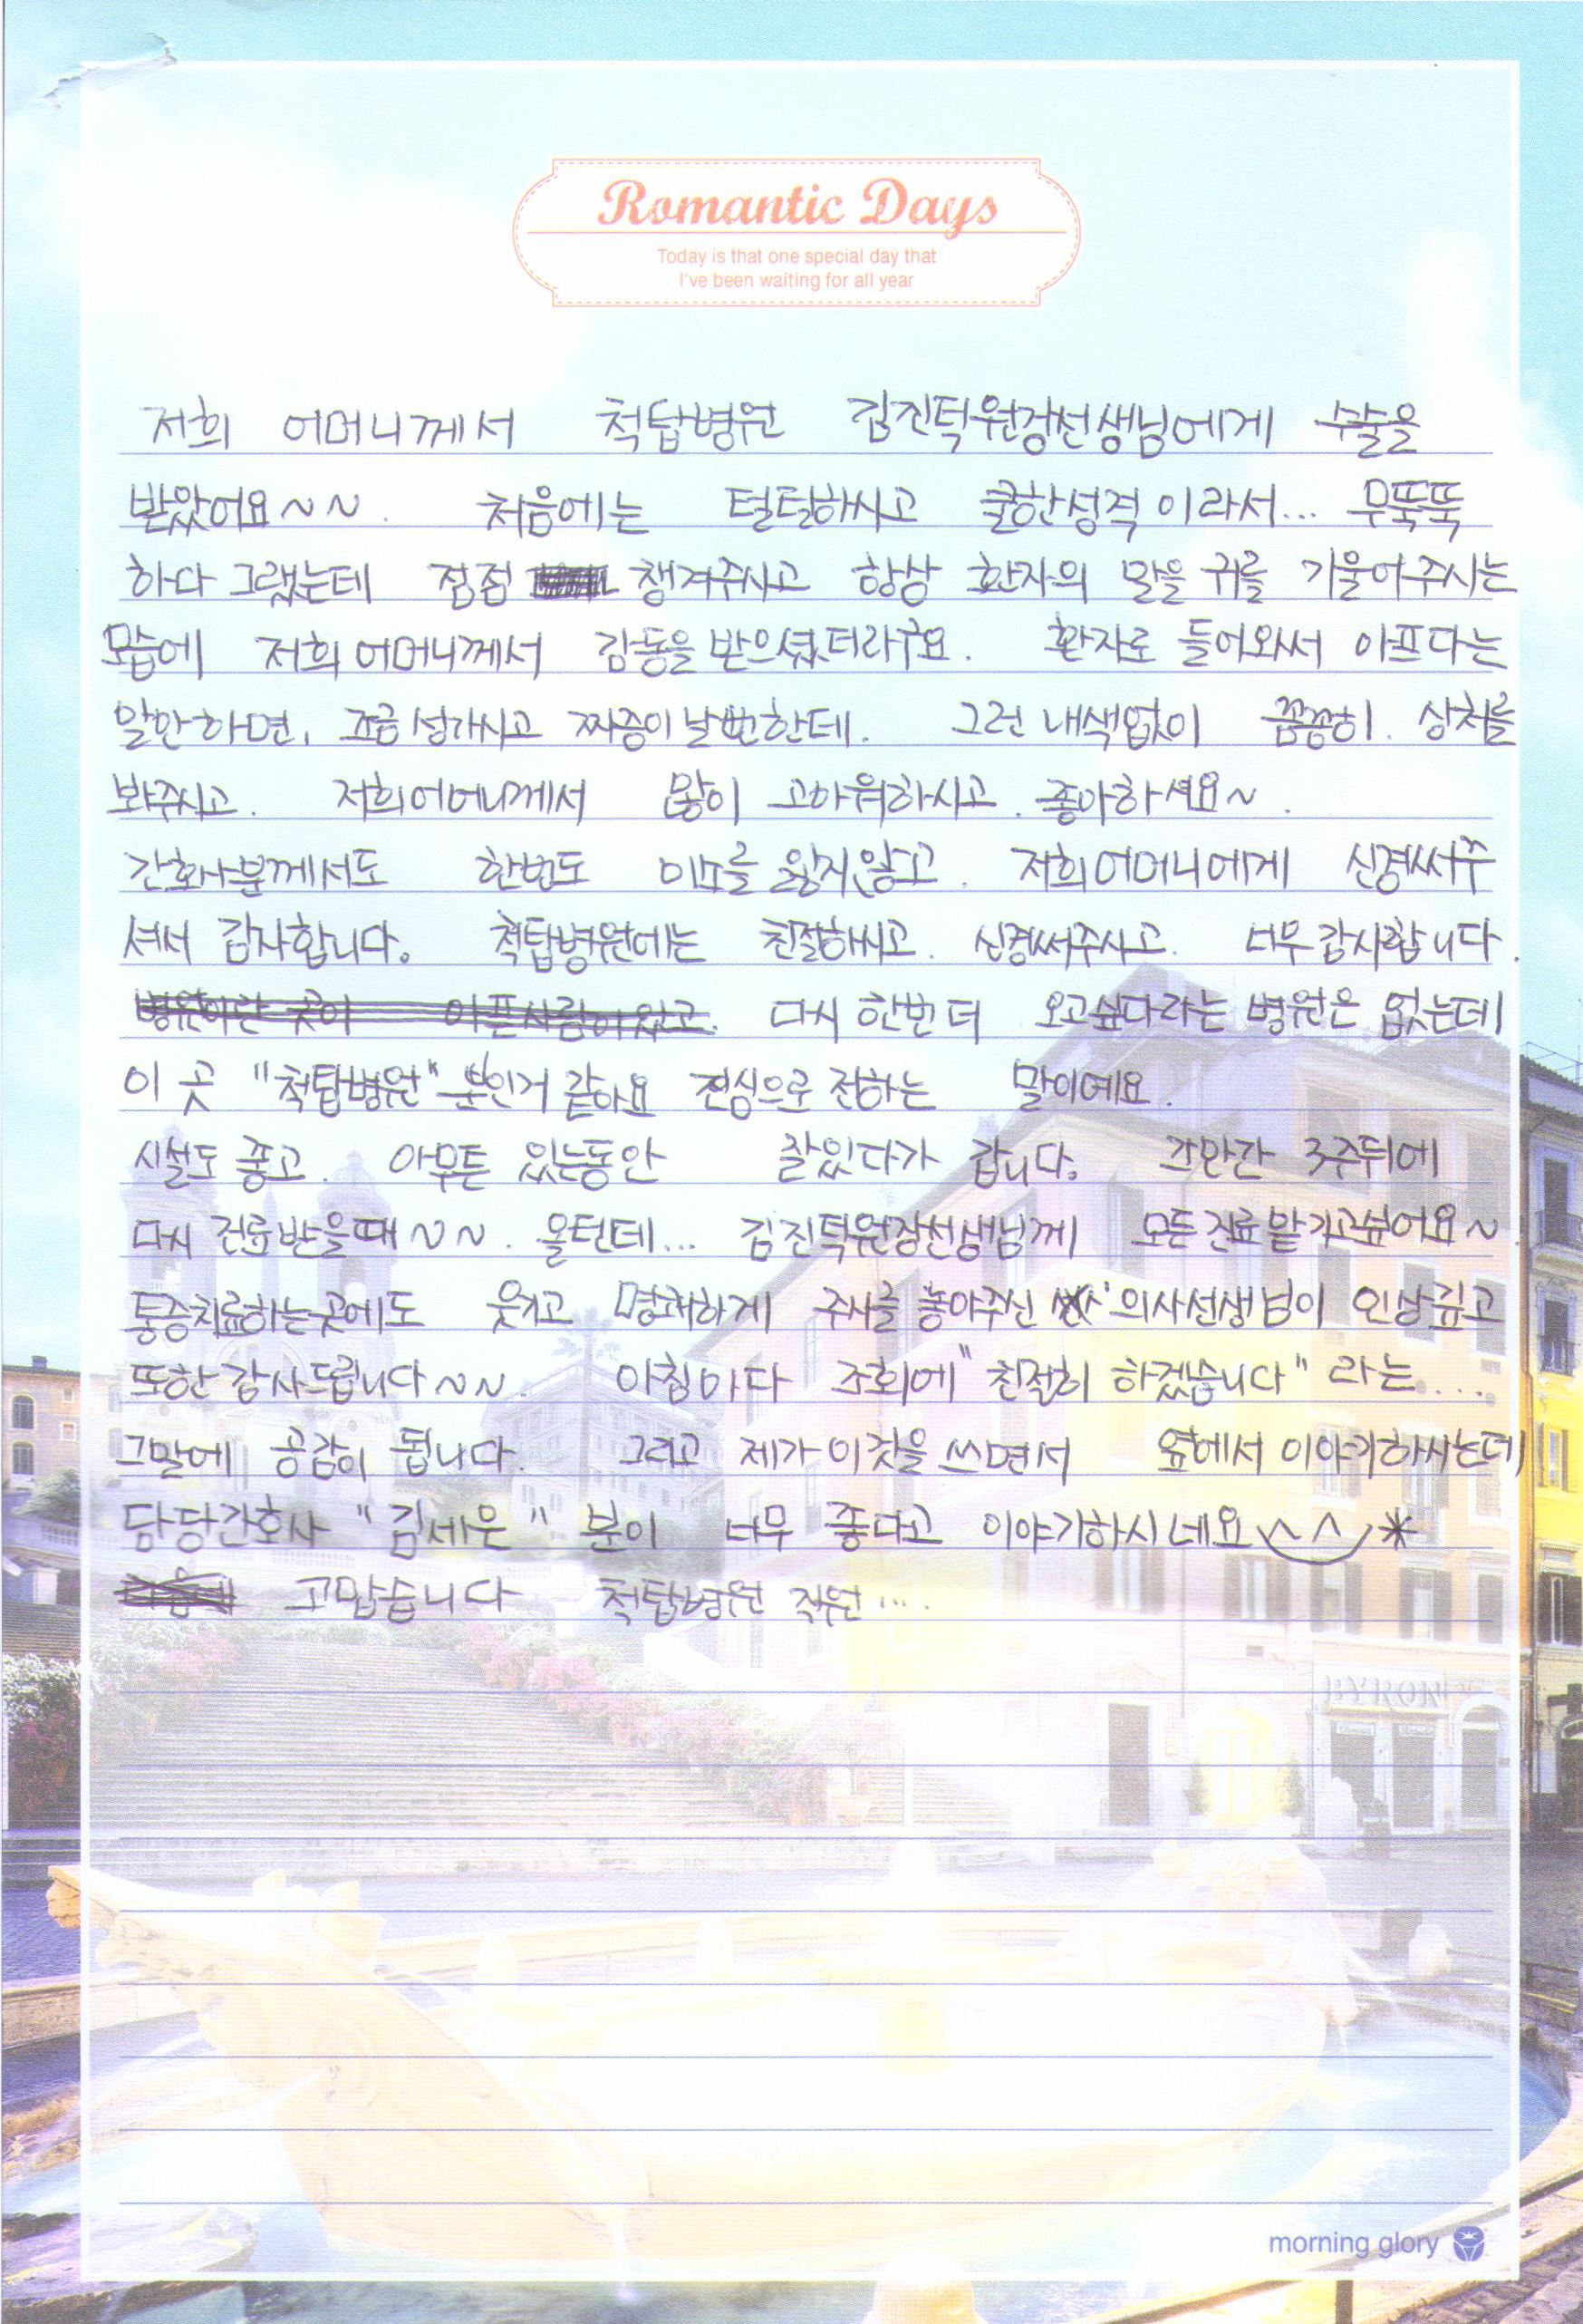 Romantic Days
Today is that one special day that
I've been waiting for all year
저희 어머니께서 척탑병원 김진턱원장선생님에게 수술을
받았어요~~. 처음에는 털털하시고 쿨한성격 이라서... 무뚝뚝
하다 그랬는데 점점 챙겨주시고 항상 환자의 말을 귀를 기울여주시는
모습에 저희 어머니께서 감동을 받으셨더라구요. 환자로 들어와서 아프다는
말만하면, 조금 성가시고 짜증이날뻔한데. 그런 내색없이 꼼꼼히. 상처를
봐주시고. 저희어머니께서 많이 고마워하시고. 좋아하셔요~.
간호사분께서도 한번도 미소를 잃지않고. 저희어머니에게 신경써주
셔서 감사합니다. 척탑병원에는 친절하시고. 신경써주시고. 너무감사합니다.
병원이란 곳이 아픈사람이 있고. 다시 한번 더 오고싶다라는 병원은 없는데
이 곳 "척탑병원" 뿐인거 같아요 진심으로 전하는 말이에요.
시설도 좋고. 아무튼 있는동안 잘있다가 갑니다. 조만간 3주뒤에
다시 진료받을때~~. 올텐데... 김진턱원장선생님께 모든진료맡기고싶어요~.
통증치료하는곳에도 웃기고 명쾌하게 주사를 놓아주신 의사선생님이 인상깊고
또한 감사드립니다~~. 아침마다 조회에 "친절히 하겠습니다" 라는....
그말에 공감이 됩니다. 그리고 제가 이것을 쓰면서 옆에서 이야기하시는데
담당간호사 "김세운" 분이 너무 좋다고 이야기하시네요 ^^*
고맙습니다 척탑병원 직원....
BYRON
morning glory